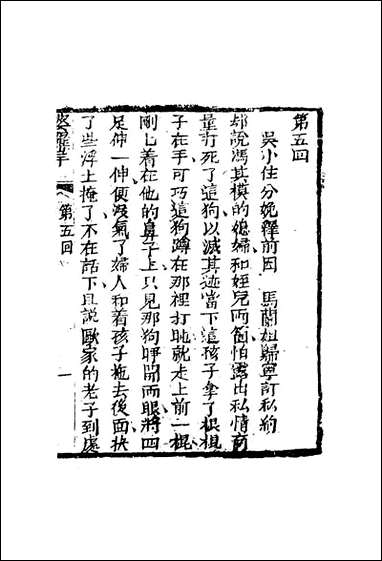 第五回
吳小住分娩釋前因　馬蘭姐歸寧訂私約
却說馮其模的媳婦和姪兒两箇怕露出私情商
量打死了這狗以滅其迹當下這孩子拿了根棍
子在手可巧這狗蹲在那裡打盹就走上前一棍
剛匕着在他的鼻子上只見那狗睜開两眼將四
足伸一伸便没氣了婦人和着孩子拖去後面抉
了些浮土掩了不在話下且説歐家的老子到處
第五回
一